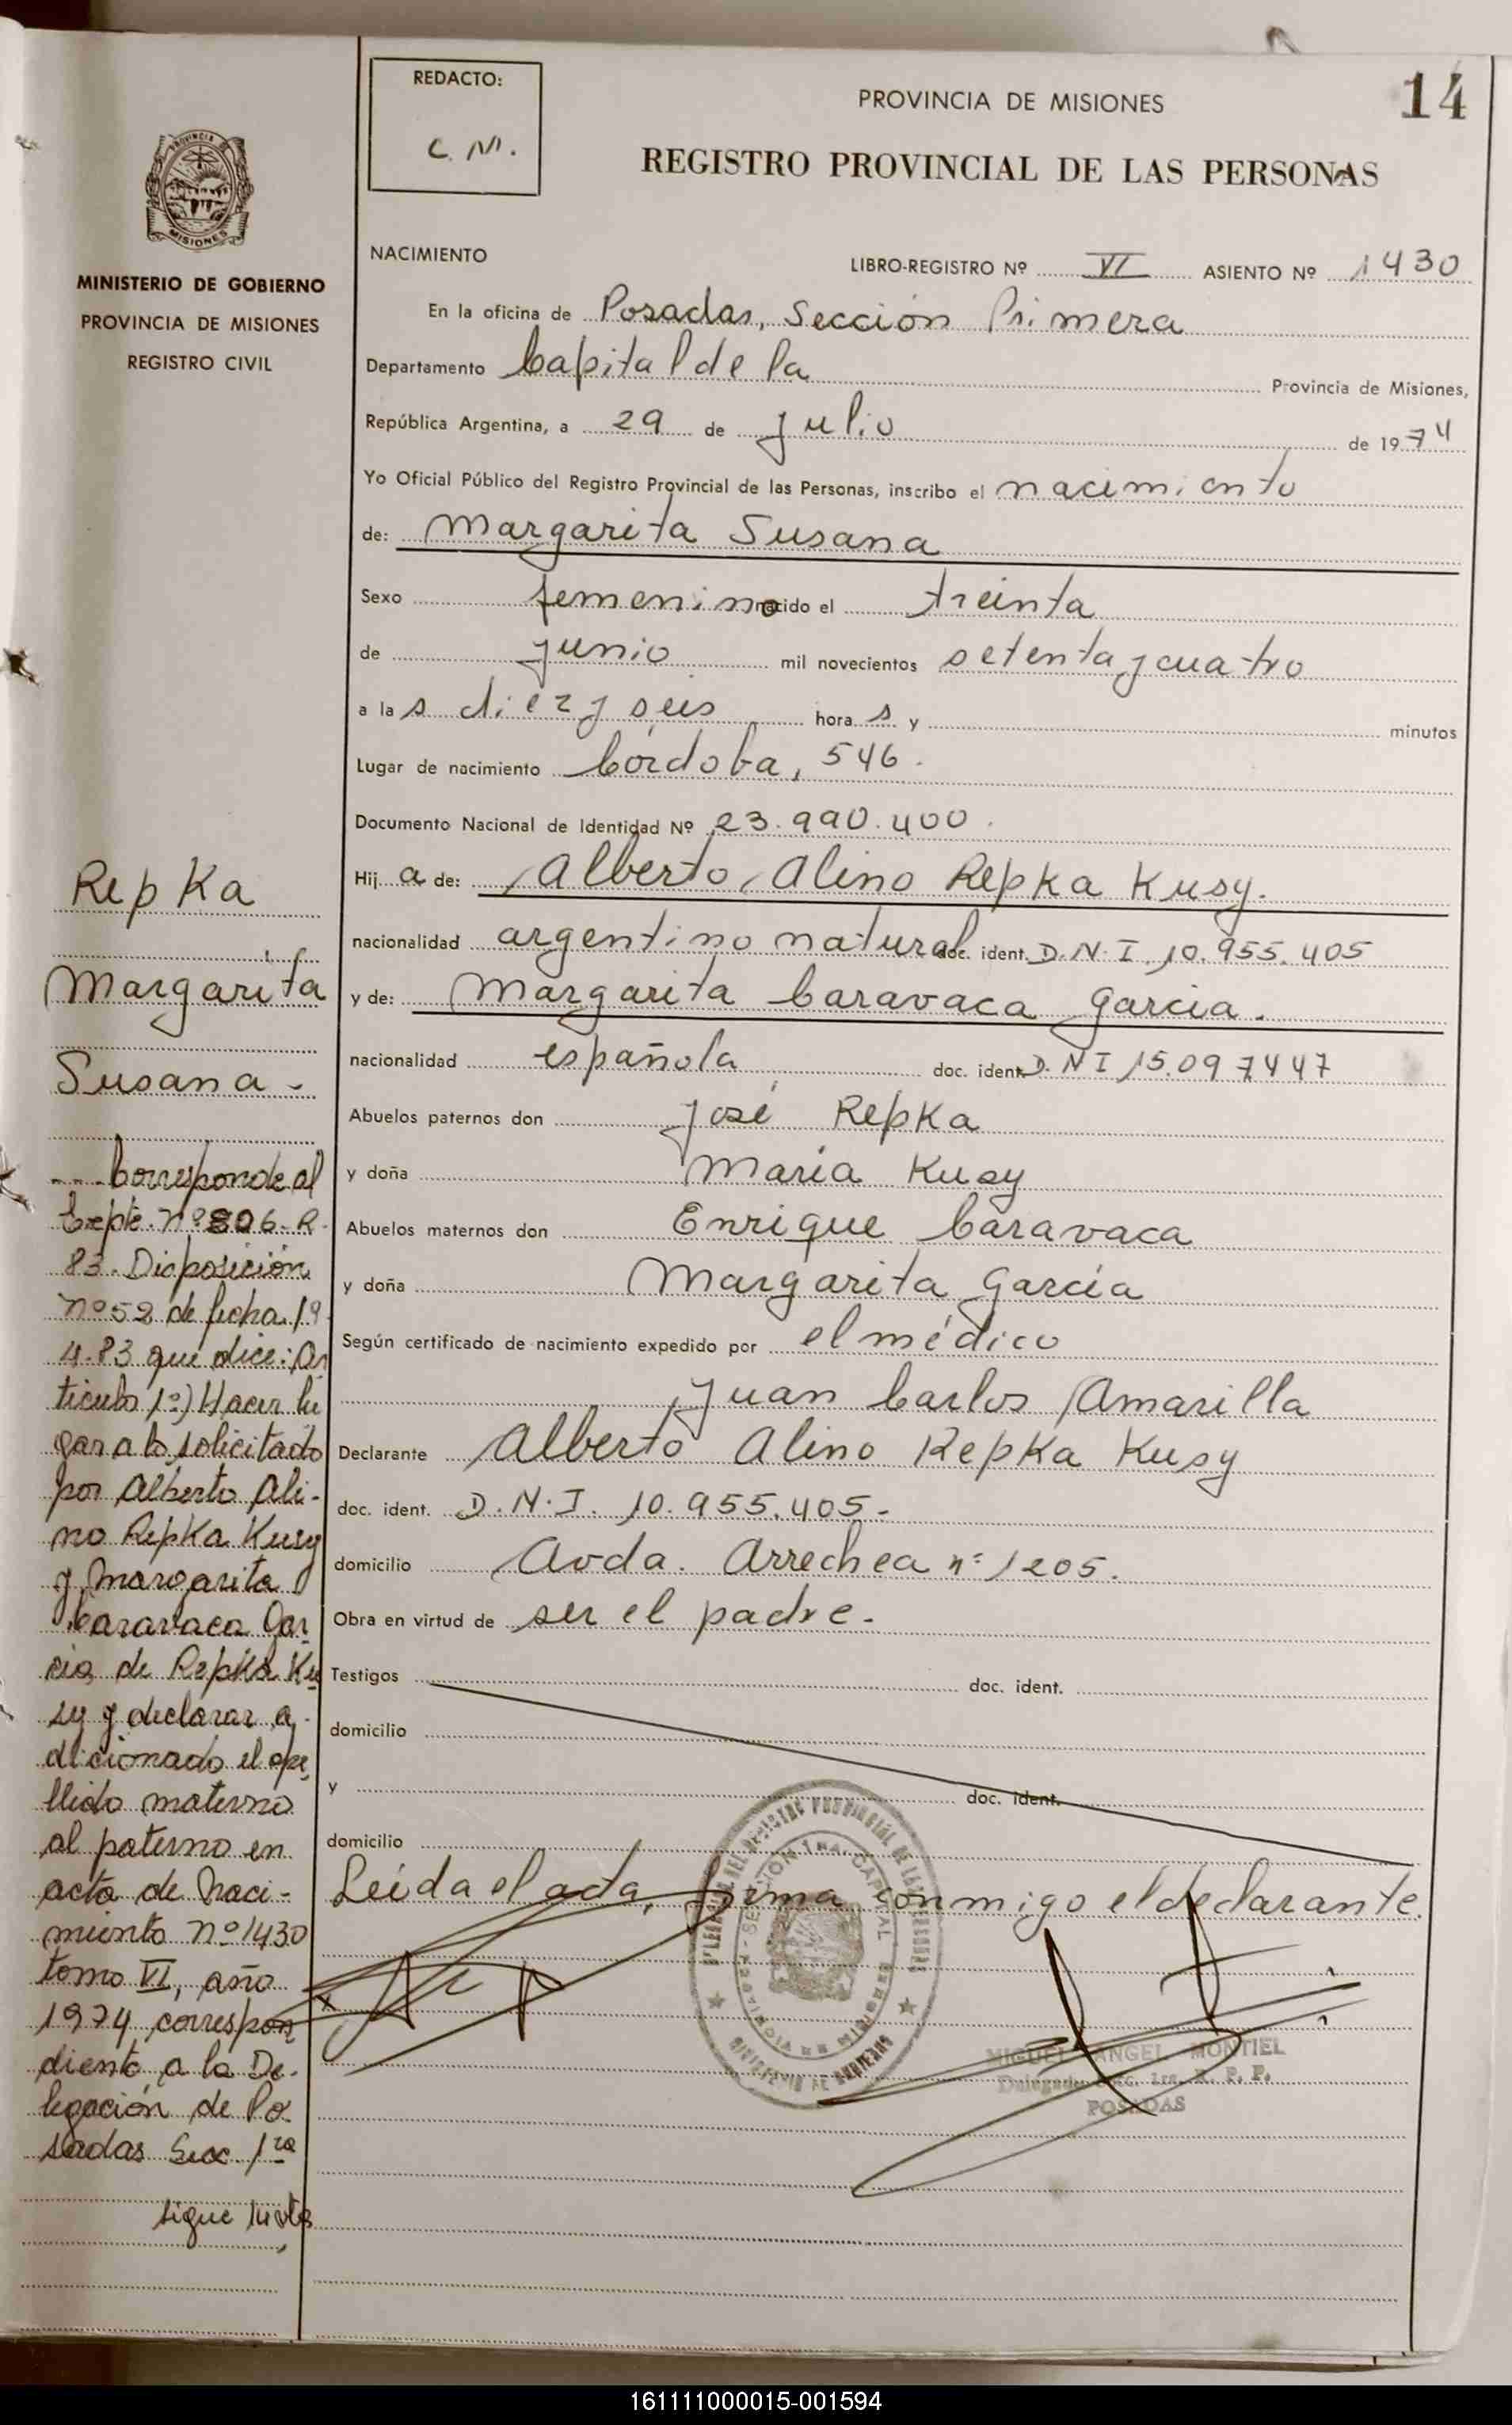 14
REDACTO:
C. M.
PROVINCIA DE MISIONES
REGISTRO PROVINCIAL DE LAS PERSONAS
PROVINCIA
MISIONES
MINISTERIO DE GOBIERNO
PROVINCIA DE MISIONES
REGISTRO CIVIL
NACIMIENTO
LIBRO-REGISTRO Nº VI ASIENTO Nº 1430
En la oficina de Posadas, Sección Primera
Departamento Capital de la Provincia de Misiones,
República Argentina, a 29 de julio de 1974
Yo Oficial Público del Registro Provincial de las Personas, inscribo el nacimiento
de: Margarita Susana
Sexo femenino nacido el treinta
de junio mil novecientos setenta y cuatro
a las diez y seis horas y minutos
Lugar de nacimiento Córdoba, 546.
Documento Nacional de Identidad Nº 23.990.400.
Hija de: Alberto Alino Repka Kusy.
nacionalidad argentino natural doc. ident. D.N.I. 10.955.405
y de: Margarita Caravaca Garcia.
nacionalidad española doc. ident. D.N I 15.097447
Abuelos paternos don José Repka
y doña Maria Kusy
Abuelos maternos don Enrique Caravaca
y doña Margarita García
Según certificado de nacimiento expedido por el médico
Juan Carlos Amarilla
Declarante Alberto Alino Repka Kusy
doc. ident. D.N.I. 10.955.405-
domicilio Avda. Arrechea nº 1205.
Obra en virtud de ser el padre.
Testigos doc. ident.
domicilio
y doc. ident.
domicilio
Leída el acta, firma conmigo el declarante.
MIGUEL ANGEL MONTIEL
POSADAS
Repka
Margarita
Susana-
Corresponde al
Expte. nº 806-R-
83. Disposición
nº 52 de fecha 19
4.83 que dice: Ar
ticulo 1º) Hacer lu
gar a lo solicitado
por Alberto Ali-
no Repka Kusy
y Margarita
Caravaca Gar
cia de Repka Ku
sy y declarar a
dicionado el ape
llido materno
al paterno en
acta de Naci-
miento nº 1430
tomo VI, año
1974 correspon
diente a la De-
legación de Po
sadas Secc. 1ra
161111000015-001594